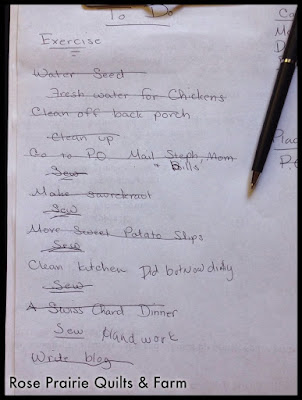 To Do
Exercise
Water Seed
Fresh water for Chickens
Clean off back porch
Clean up
Go to PO Mail Steph, Mom
+ Bills
Sew
Make saurekraut
Sew
Move Sweet Potato Slips
Sew
Clean kitchen Did but Now dirty
Sew
A Swiss Chard Dinner
Sew Hand work
Write blog
P.O
Rose Prairie Quilts & Farm